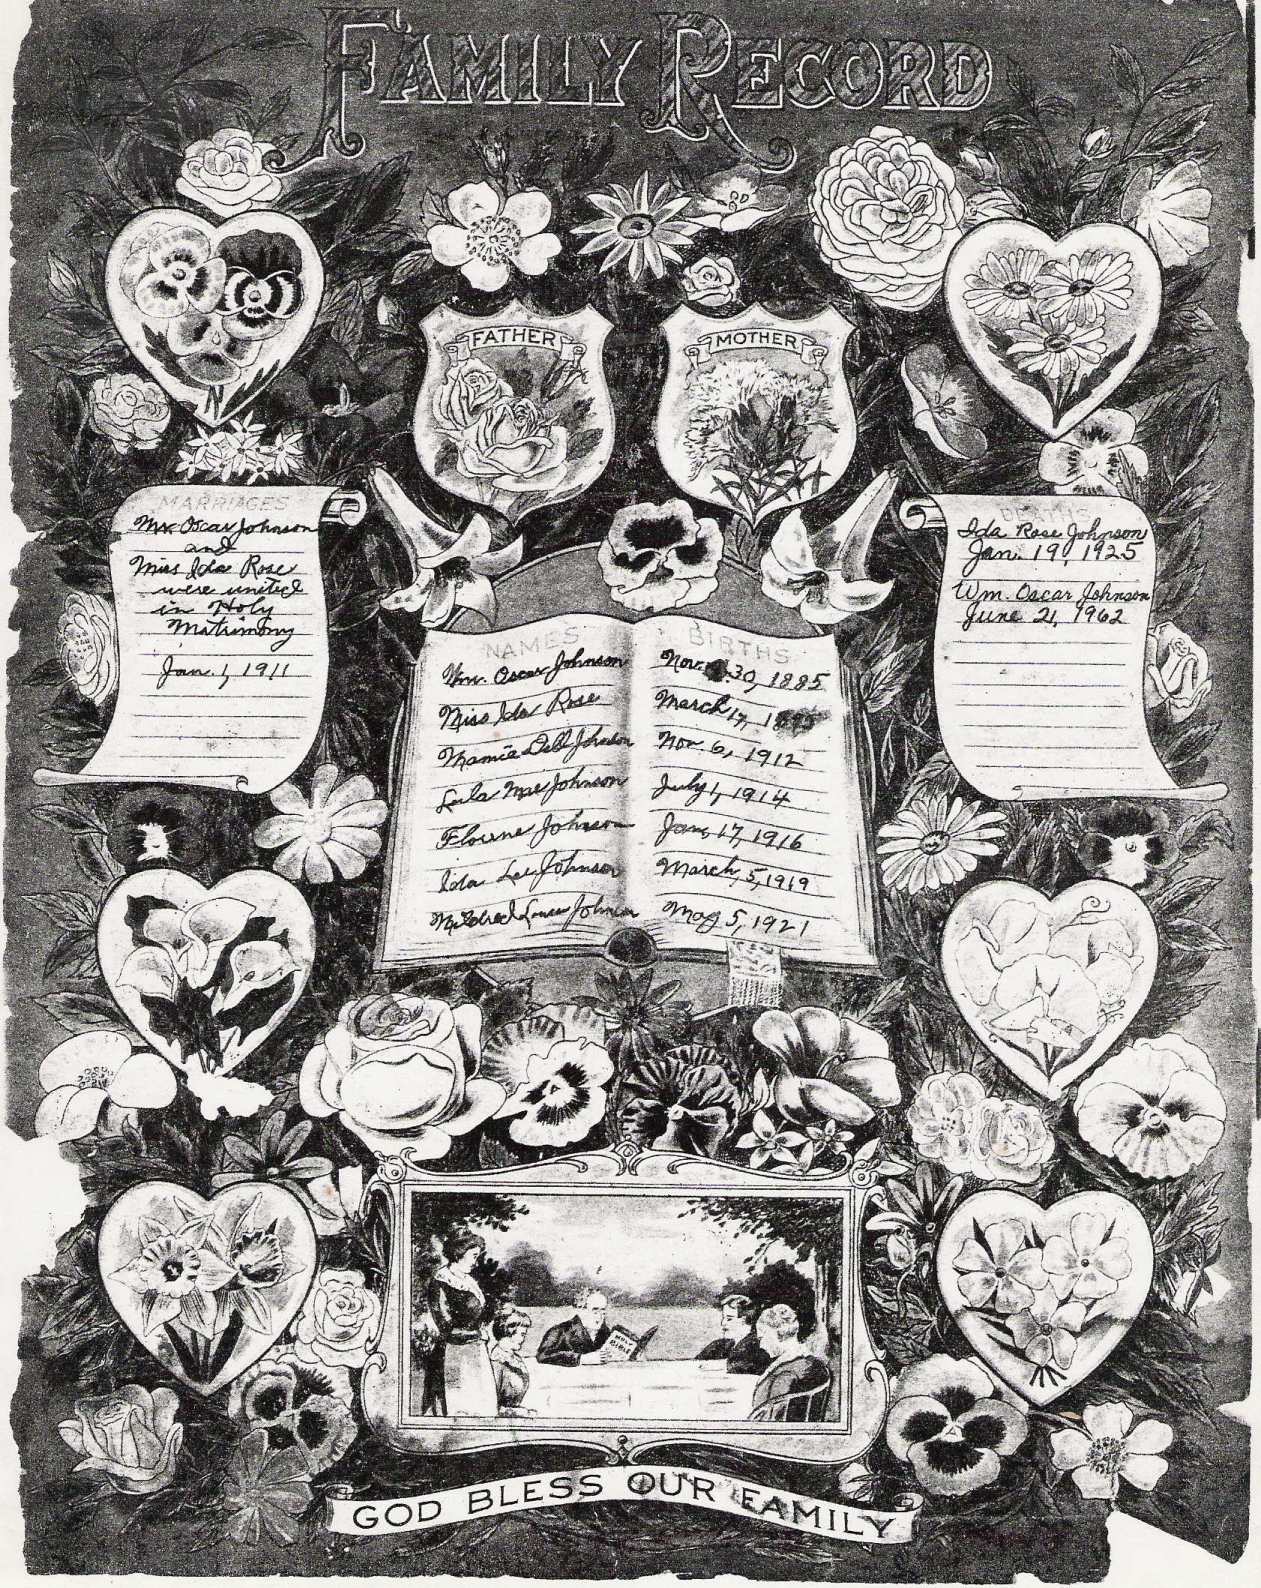 FAMILY RECORD
FATHER
MOTHER
MARRIAGES
Mr. Oscar Johnson
and
Miss Ida Rose
were united
in Holy
Matrimony
Jan. 1, 1911
DEATHS
Ida Rose Johnson
Jan. 19, 1925
Wm. Oscar Johnson
June 21, 1962
NAMES BIRTHS
Wm. Oscar Johnson Nov. 30, 1885
Miss Ida Rose March 17,
Mamie Dell Johnson Nov. 6, 1912
Lula Mae Johnson July 1, 1914
Johnson Jan, 17, 1916
Ida Lee Johnson March, 5, 1919
Mildred Johnson May 5, 1921
HOLY
BIBLE
GOD BLESS OUR FAMILY